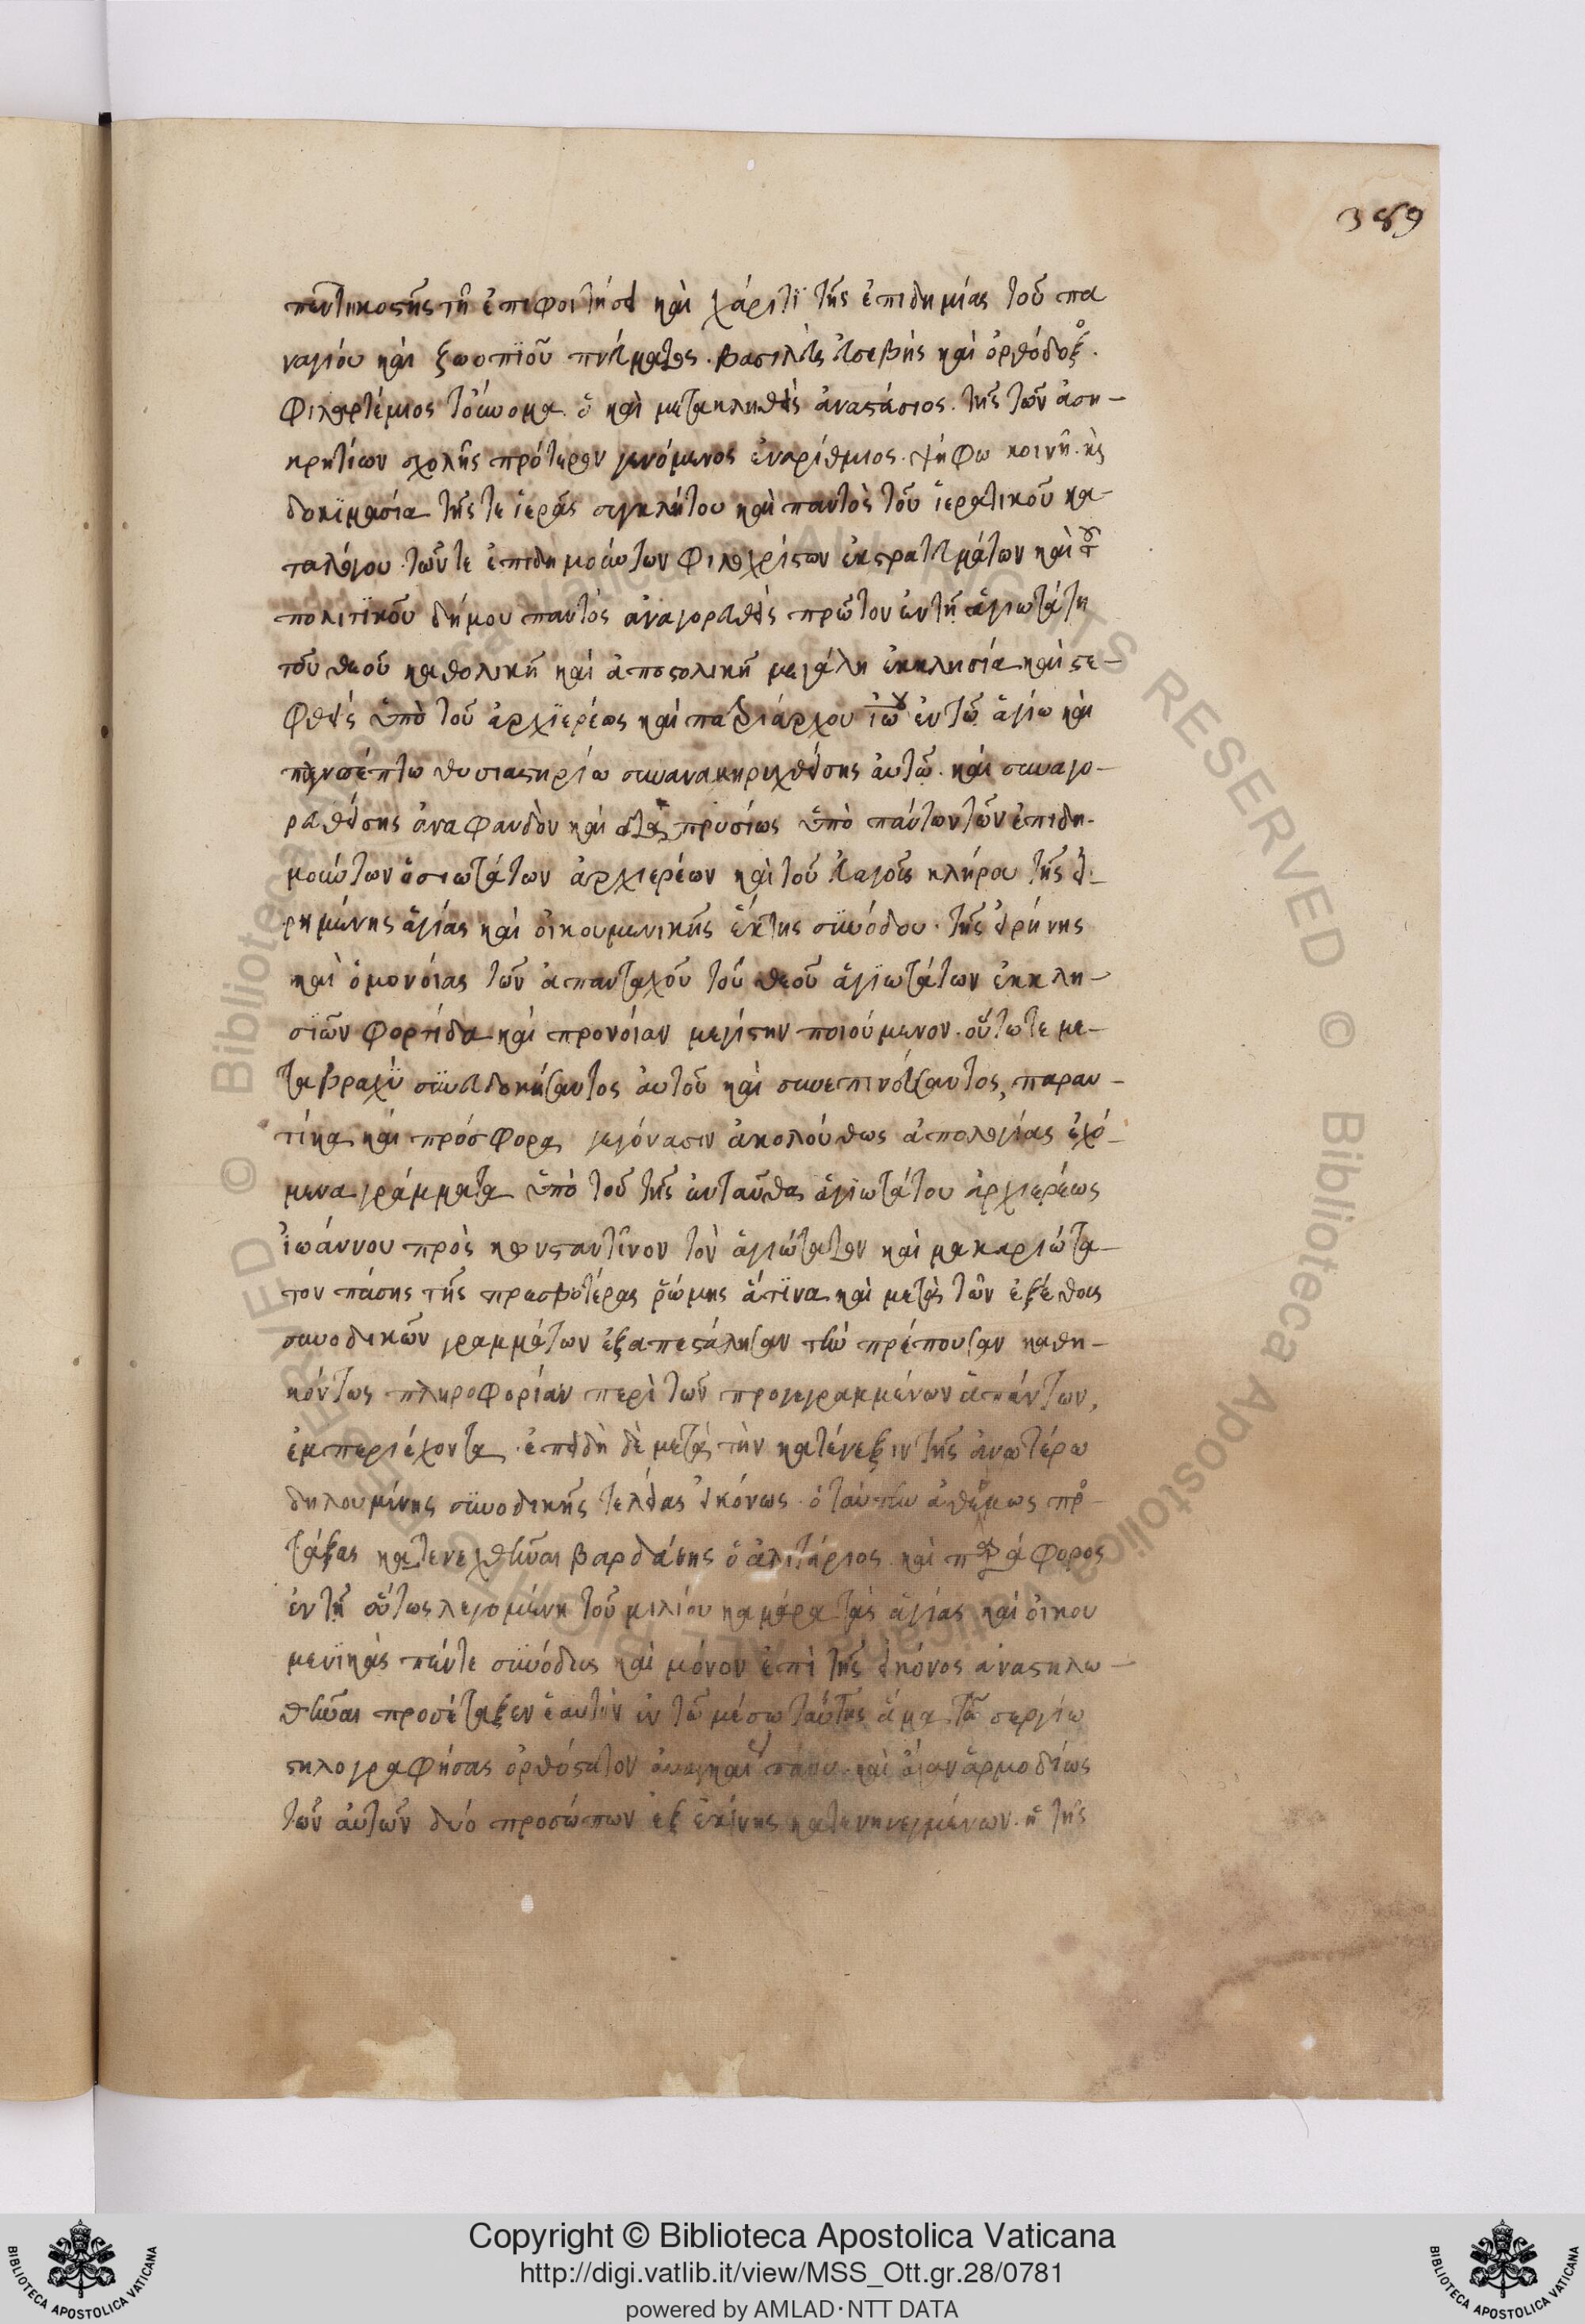 389
πεντηκοστῆς τῇ ἐπιφοιτήσει καὶ χάριτϊ τῆς ἐπιδημίας τοῦ πα
ναγίου καὶ ζωοπϊοῦ πνεύματος. βασιλεὺς εὐσεβὴς καὶ ὀρθόδοξο.
Φιλαρτέμιος τοὔνομα. ὁ καὶ μετακληθεὶς ἀναστάσιος. τῆς τῶν ἀση-
κρητίων σχολῆς πρότερον γενόμενος ἐναρίθμιος. ψήφω κοινῆ. κὶ
δοκϊμασία τῆς τε ἱερᾶς συγκλήτου καὶ παντὸς τοῦ ἱερατικοῦ κα-
ταλόγου. τῶν τε ἐπιδημούντων φιλοχρίστων ἐκστρατευμάτων καὶ τοῦ
πολιτϊκοῦ δήμου παντὸς ἀναγορευθεὶς πρῶτον ἐν τῆ ἁγιωτάτη
τοῦ θεοῦ καθολικῆ καὶ ἀποστολικῆ μεγάλη ἐκκλησία καὶ στε-
φθεὶς ὑπὸ τοῦ ἀρχϊερέως καὶ πατριάρχου ἰω ἐν τῶ ἁγίω καὶ
πανσέπτω θυσιαστηρίω συνανακηρυχθείσης αὐτῶ. καὶ συναγο-
ρευθείσης ἀναφανδὸν καὶ διαπρυσίως ὑπὸ πάντων τῶν ἐπιδη-
μούντων ὁσιωτάτων ἀρχιερέων καὶ τοῦ εὐαγοῦς κλήρου τῆς εἰ-
ρημένης ἁγίας καὶ οἰκουμενικῆς ἕκτης συνόδου. τῆς εἰρήνης
καὶ ὁμονόιας τῶν ἁπανταχοῦ τοῦ θεοῦ ἁγϊωτάτων ἐκκλη-
σϊῶν φορτίδα καὶ προνόιαν μεγίστην ποιούμενον. οὕτω τε με-
τα βραχὺ συνευδοκήσαντος αὐτοῦ καὶ συνεπινεύσαντος, παραυ-
τίκα καὶ πρόσφορα γεγόνασιν ἀκολούθως ἀπολογίας ἐχό-
μενα γράμματα ὑπὸ τοῦ τῆς ἐνταῦθα ἁγϊωτάτου ἀρχιερέως
ἰωάννου πρὸς κωνσταντῖνον τὸν ἁγιώτατον καὶ μακαριώτα-
τον πάσης τῆς πρεσβυτέρας ῥώμης ἅτϊνα καὶ μετὰ τῶν ἐκεῖθεν
συνοδικῶν γραμμάτων ἐξαπεστάλησαν τὴν πρέπουσαν καθη-
κόντως πληροφορίαν περὶ τῶν προγεγραμμένων ἁπάντων,
ἐμπεριέχοντα. ἐπειδὴ δὲ μετὰ τὴν κατένεξιν τῆς ἀνωτέρω
δηλουμένης συνοδικῆς τελείας εἰκόνως. ὁ ταύτην ἀθέμως προ-
τάξας κατενεχθῆναι βαρδάνης ὁ ἀλιτήριος καὶ παράφορος
ἐν τῆ οὕτως λεγομένη τοῦ μιλίου καμάρα τὰς ἁγίας καὶ οἰκου
μενϊκὰς πέντε συνόδους καὶ μόνον ἐπὶ τῆς εἰκόνος ἀναστηλω-
θῆναι προσέταξεν ἑαυτὸν ἐν τῶ μέσω ταύτης ἅμα τῶ σεργίω
στηλογραφήσας ὀρθόστατον ἀναγκαίως πάνυ. καὶ ἄγαν ἁρμοδίως
τῶν αὐτῶν δύο προσώπων ἐξ ἐκείνης κατενηνεγμένων. ἡ τῆς
Copyright © Biblioteca Apostolica Vaticana
http://digi.vatlib.it/view/MSS_Ott.gr.28/0781
powered by AMLAD·NTT DATA